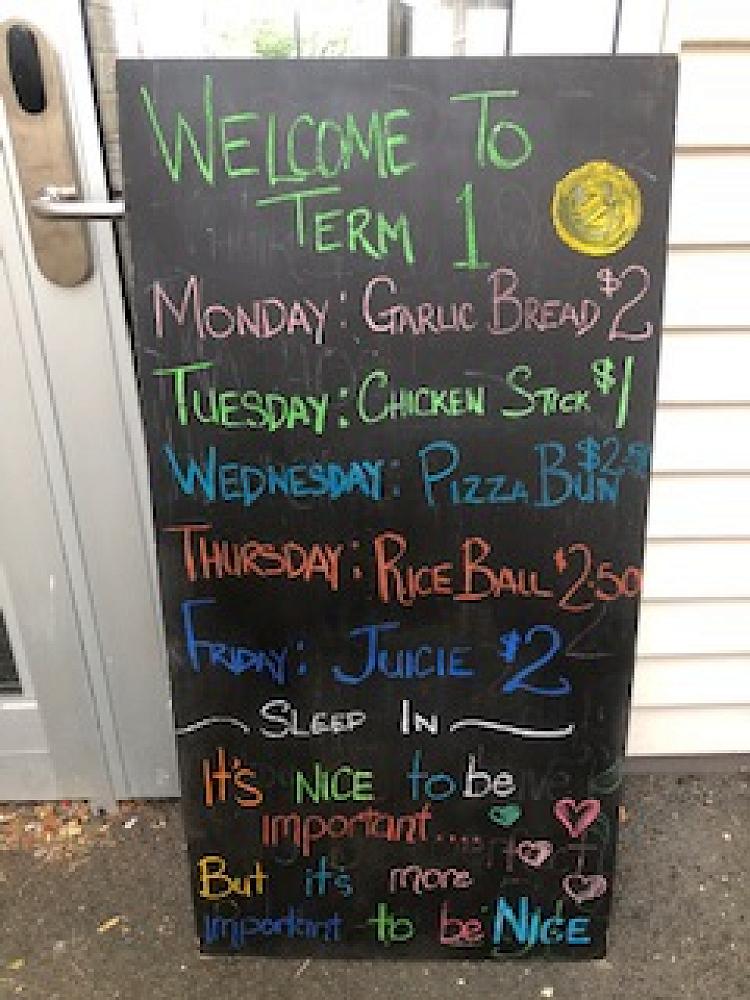 WELCOME TO
TERM 1
2
MONDAY: GARLIC BREAD $2
TUESDAY: CHICKEN STICK $1
WEDNESDAY: PIZZA BUN $2.50
THURSDAY: RICE BALL $2.50
FRIDAY: JUICIE $2
SLEEP IN
It's NICE to be
important....
But it's more
important to be NICE